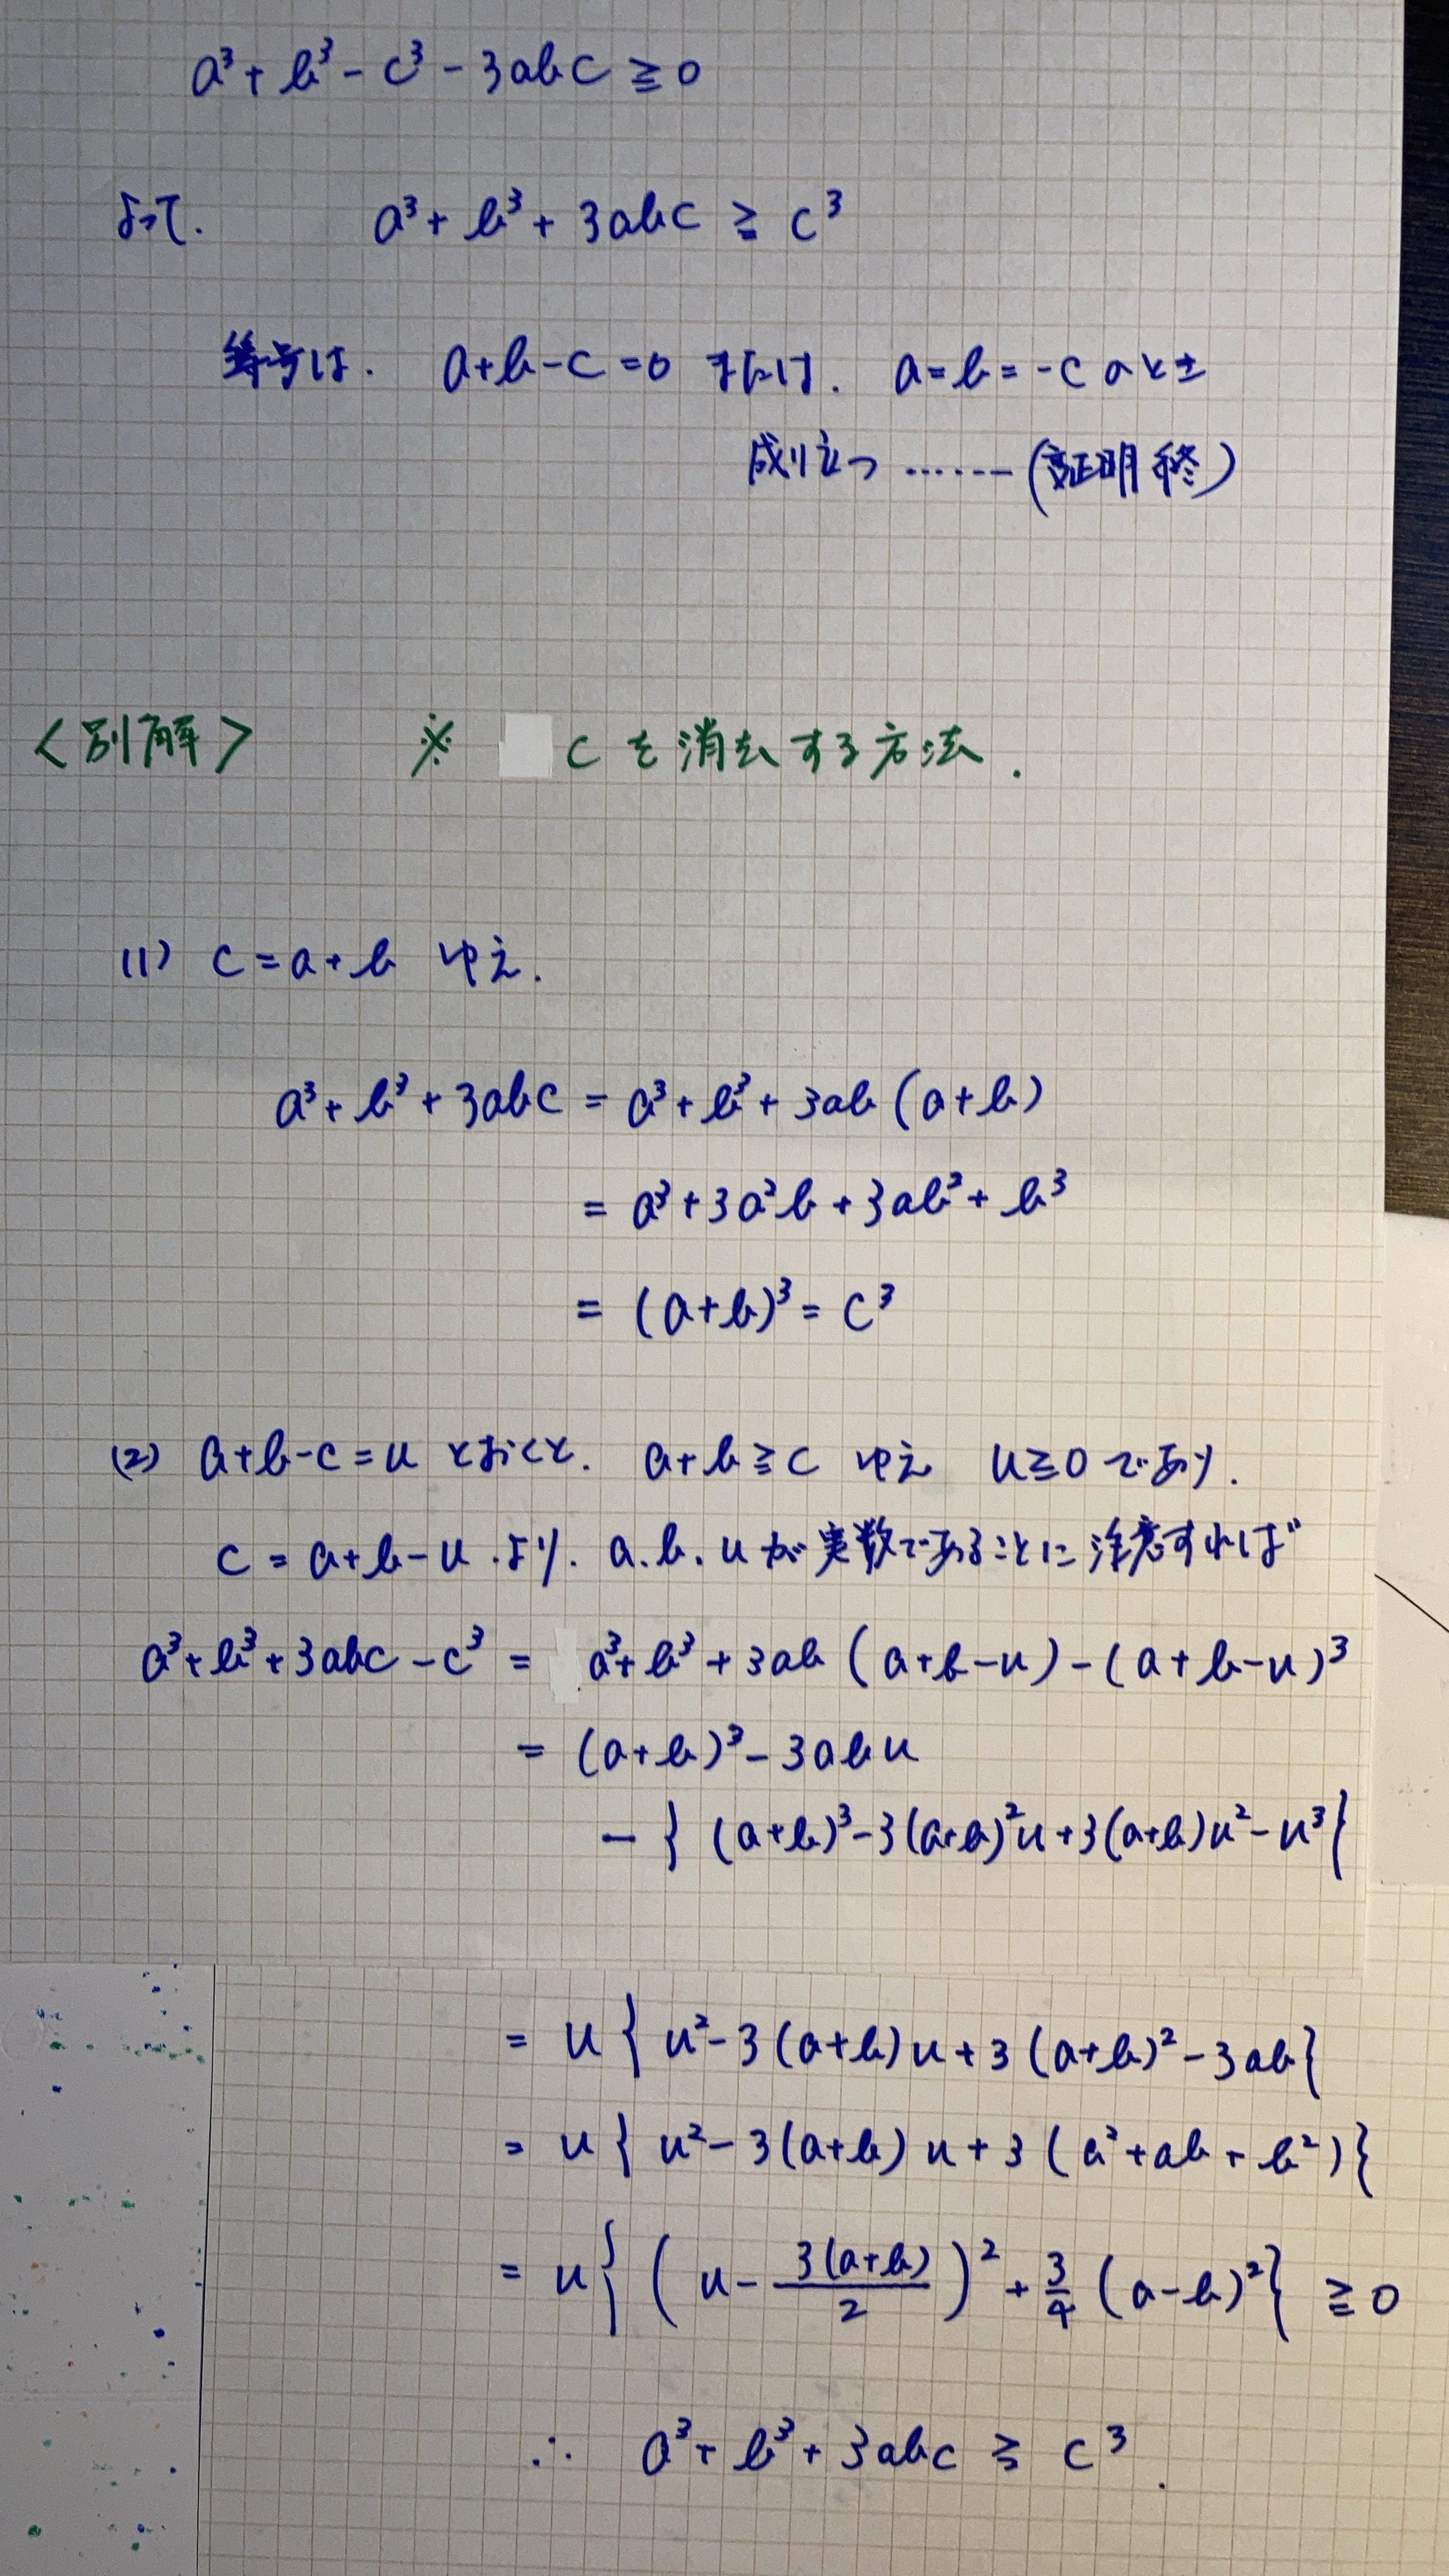 a³+b³-c³-3abc≧0
よって. a³+b³+3abc≧c³
等号は. a+b-c=0 または. a=b=-c のとき
成り立つ ……(証明終)
<別解> ※ cを消去する方法.
(1) c=a+b ゆえ.
a³+b³+3abc=a³+b³+3ab(a+b)
=a³+3a²b+3ab²+b³
=(a+b)³=c³
(2) a+b-c=u とおくと. a+b≧c ゆえ u≧0であり.
c=a+b-u より. a.b.uが実数であることに注意すれば
a³+b³+3abc-c³=a³+b³+3ab(a+b-u)-(a+b-u)³
=(a+b)³-3abu
-{(a+b)³-3(a+b)²u+3(a+b)u²-u³}
=u{u²-3(a+b)u+3(a+b)²-3ab}
=u{u²-3(a+b)u+3(a²+ab+b²)}
=u{(u-3(a+b)/2)²+3/4(a-b)²}≧0
∴ a³+b³+3abc≧c³.